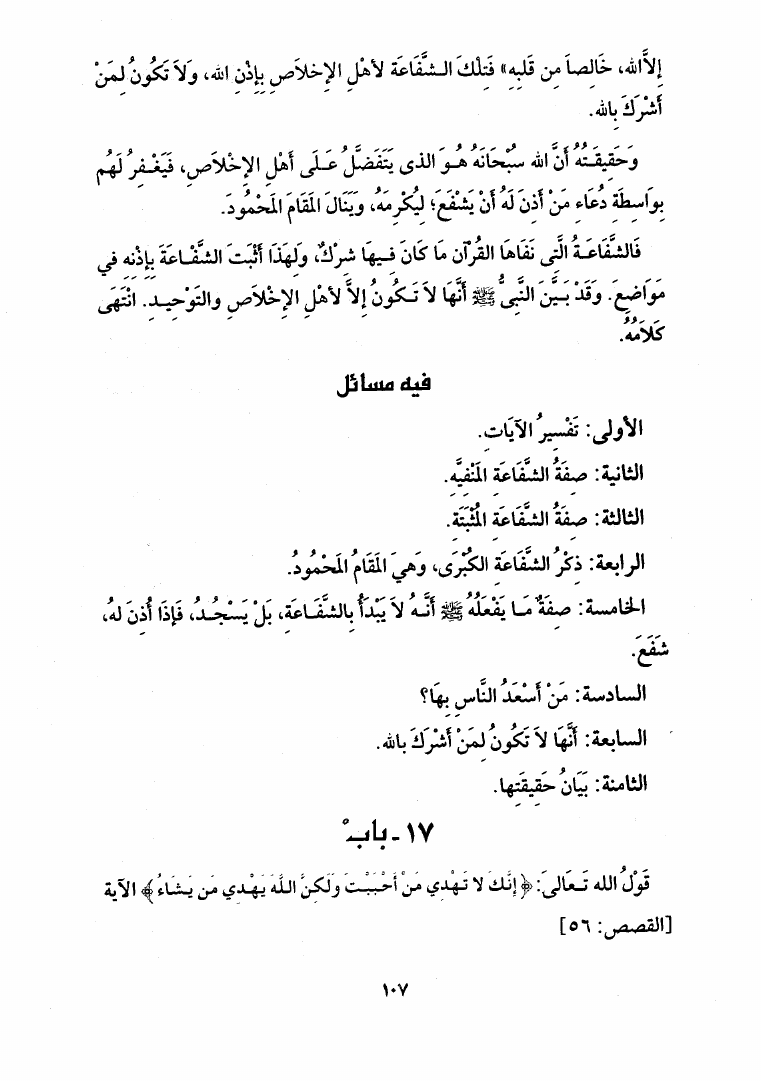 إِلاَّالله، خَالِصاً مِن قَلبِهِ» فَتِلْكَ الشَّفَاعَة لأهْلِ الإخلاَصِ بِإِذْنِ الله، وَلاَ تَكُونُ لِمَنْ
أَشْرَكَ بِالله.
وَحَقِيقَتُهُ أَنَّ الله سُبْحَانَهُ هُوَ الذى يَتَفَضَّلُ عَلَى أَهْلِ الإِخْلاَصِ، فَيَغْفِرُ لَهُم
بِوَاسِطَةِ دُعَاءِ مَنْ أَذِنَ لَهُ أَنْ يَشْفَعَ؛ لِيُكْرِمَهُ، وَيَنَالَ المَقَامَ المَحْمُودَ.
فَالشَّفَاعَةُ الَّتِى نَفَاهَا القُرآن مَا كَانَ فِيهَا شِرْكٌ، وَلِهَذَا أَثْبَتَ الشَّفَاعَةَ بِإِذْنِهِ فِي
مَوَاضِعَ. وَقَدْ بَيَّنَ النَّبِىُّ ﷺ أَنَّهَا لاَ تَكُونُ إِلاَّ لأَهْلِ الإِخْلاَصِ والتَوْحِيدِ. انْتَهَى
كَلاَمُهُ.
فيه مسائل
الأولى: تَفْسِيرُ الآيَاتِ.
الثانية: صِفَةُ الشَّفَاعَةِ المَنْفِيَّهِ.
الثالثة: صِفَةُ الشَّفَاعَةِ المُثْبَتَةِ.
الرابعة: ذِكْرُ الشَّفَاعَةِ الكُبْرَى، وَهِيَ المَقَامُ المَحْمُودُ.
الخامسة: صِفَةُ مَا يَفْعَلُهُ ﷺ أَنَّهُ لاَ يَبْدَأُ بِالشَّفَاعَةِ، بَلْ يَسْجُدُ، فَإِذَا أُذِنَ لهُ،
شَفَعَ.
السادسة: مَنْ أَسْعَدُ النَّاسِ بِهَا؟
السابعة: أَنَّهَا لاَ تَكُونُ لِمَنْ أَشْرَكَ بالله.
الثامنة: بَيَانُ حَقِيقَتِها.
١٧ ـ بابٌ
قَوْلُ الله تَعَالىَ: ﴿إِنَّكَ لا تَهْدِي مَنْ أَحْبَبْتَ وَلَكِنَّ اللَّهَ يَهْدِي مَن يَشَاءُ﴾ الآية
[القصص: ٥٦]
١٠٧